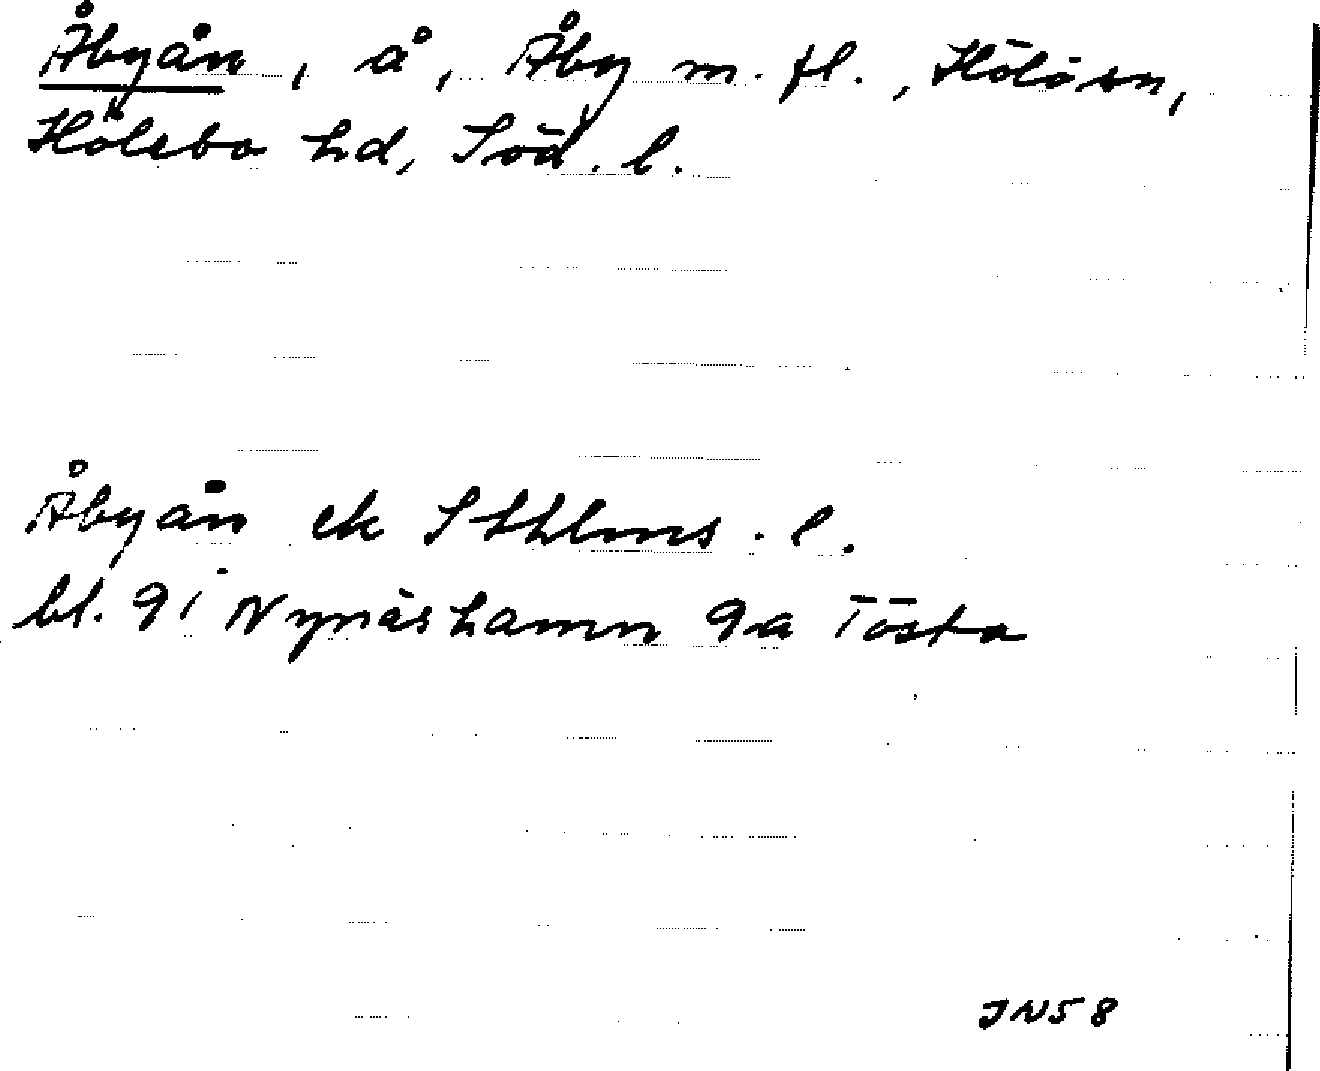 Åbyån, å, Åby m. fl., Hölö sn,
Hölebo hd, Söd. l.
Åbyån ek Sthlms. l.
bl. 9i Nynäshamn 9a Tösta
JN58